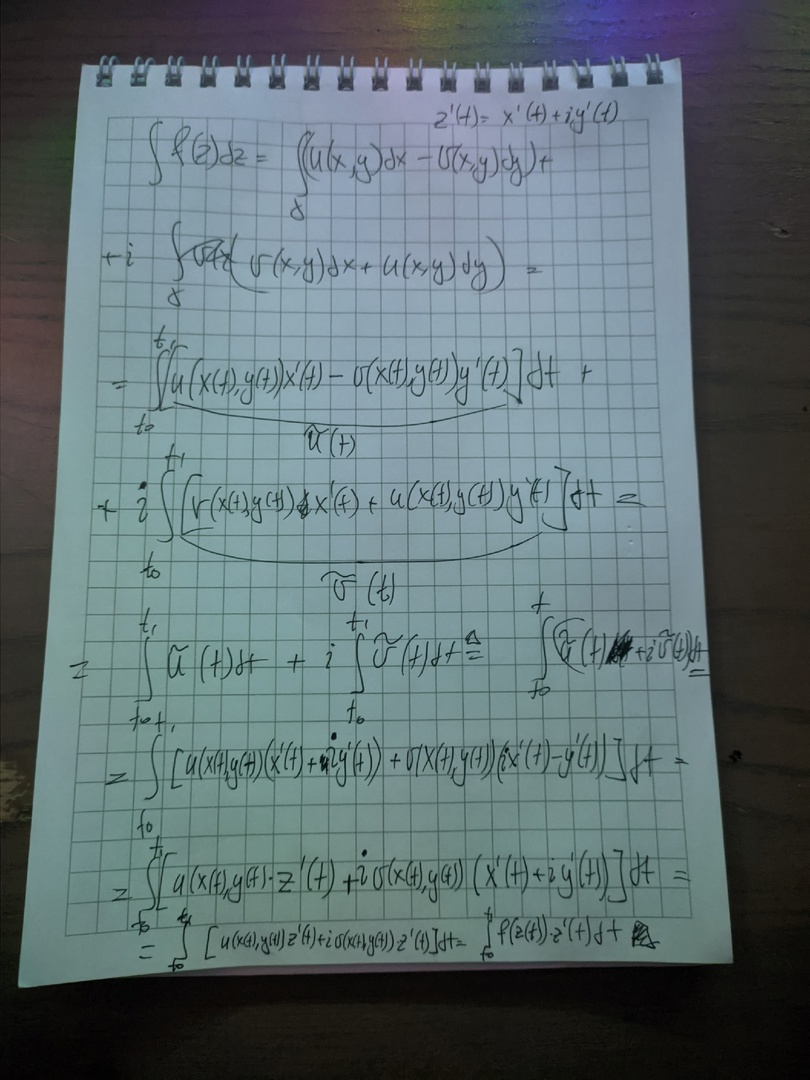 z'(t) = x'(t) + iy'(t)
∫ f(z)dz = ∫_γ (u(x,y)dx − v(x,y)dy) +
+ i ∫_γ (v(x,y)dx + u(x,y)dy) =
= ∫_{t₀}^{t₁} [u(x(t),y(t))x'(t) − v(x(t),y(t))y'(t)] dt +
ũ(t)
+ i ∫_{t₀}^{t₁} [v(x(t),y(t))x'(t) + u(x(t),y(t))y'(t)] dt =
ṽ(t)
= ∫_{t₀}^{t₁} ũ(t)dt + i ∫_{t₀}^{t₁} ṽ(t)dt ≜ ∫_{t₀}^{t} (ũ(t) + iṽ(t))dt =
= ∫_{t₀}^{t₁} [u(x(t),y(t))(x'(t) + iy'(t)) + v(x(t),y(t))(ix'(t) − y'(t))] dt =
= ∫_{t₀}^{t₁} [u(x(t),y(t)·z'(t) + iv(x(t),y(t))(x'(t) + iy'(t))] dt =
= ∫_{t₀}^{t₁} [u(x(t),y(t))z'(t) + iv(x(t),y(t))·z'(t)]dt = ∫_{t₀}^{t₁} f(z(t))·z'(t)dt